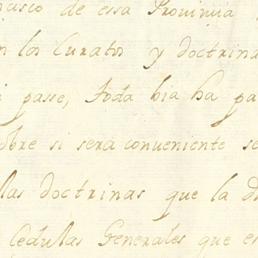 ncisco de essa Provincia
n los Curatos y doctrina
passe, toda bia ha pa
obre si sera conveniente se
llas doctrinas que la di
Cedulas Generales que es